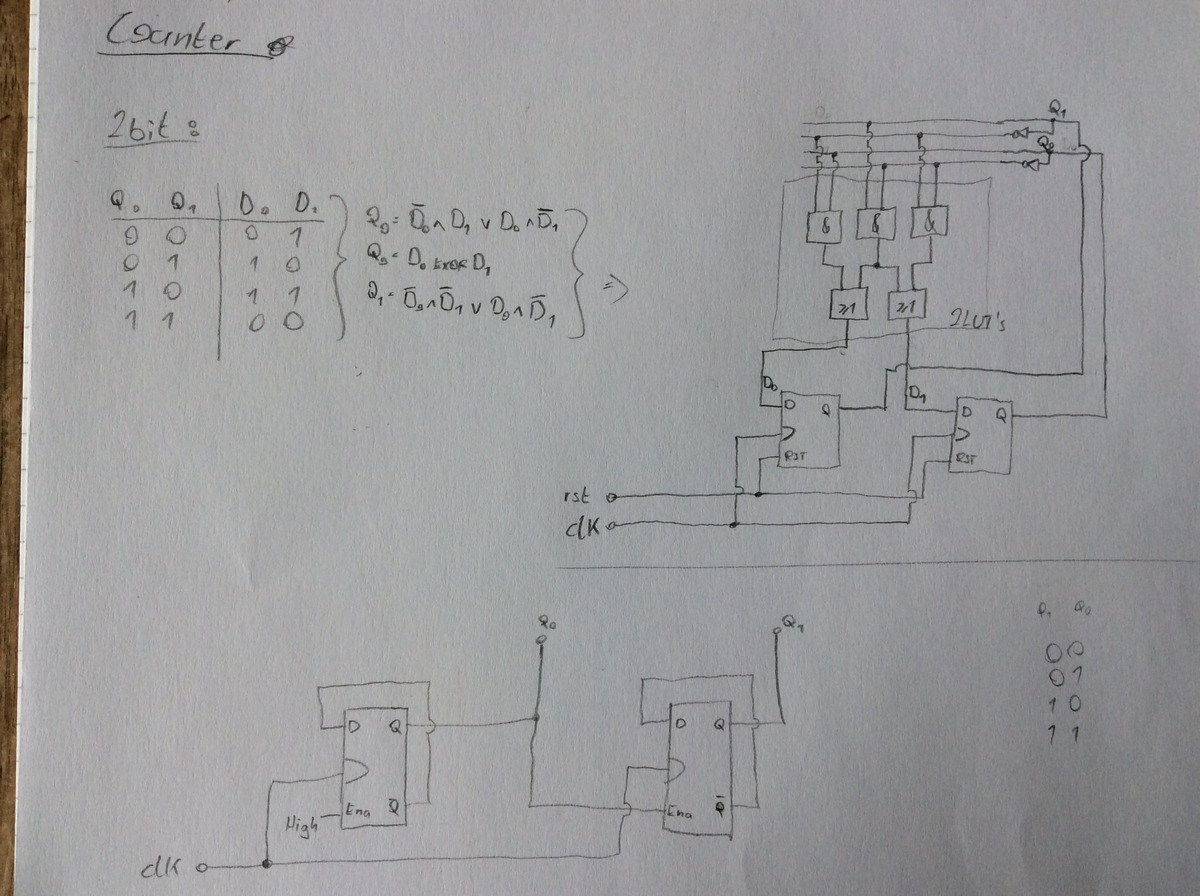 Counter
2bit :
Q₀ Q₁ D₀ D₁
0 0 0 1
0 1 1 0
1 0 1 1
1 1 0 0
Q₀ = D̅₀ ∧ D₁ ∨ D₀ ∧ D̅₁
Q₀ = D₀ EXOR D₁
Q₁ = D̅₀ ∧ D̅₁ ∨ D₀ ∧ D̅₁
=>
Q₁
Q₀
& & &
≥1 ≥1
2LUT's
D₀ D₁
D Q
RST
D Q
RST
rst
clk
Q₀ Q₁
D Q
Ena Q̅
High
D Q
Ena Q̅
clk
Q₁ Q₀
0 0
0 1
1 0
1 1